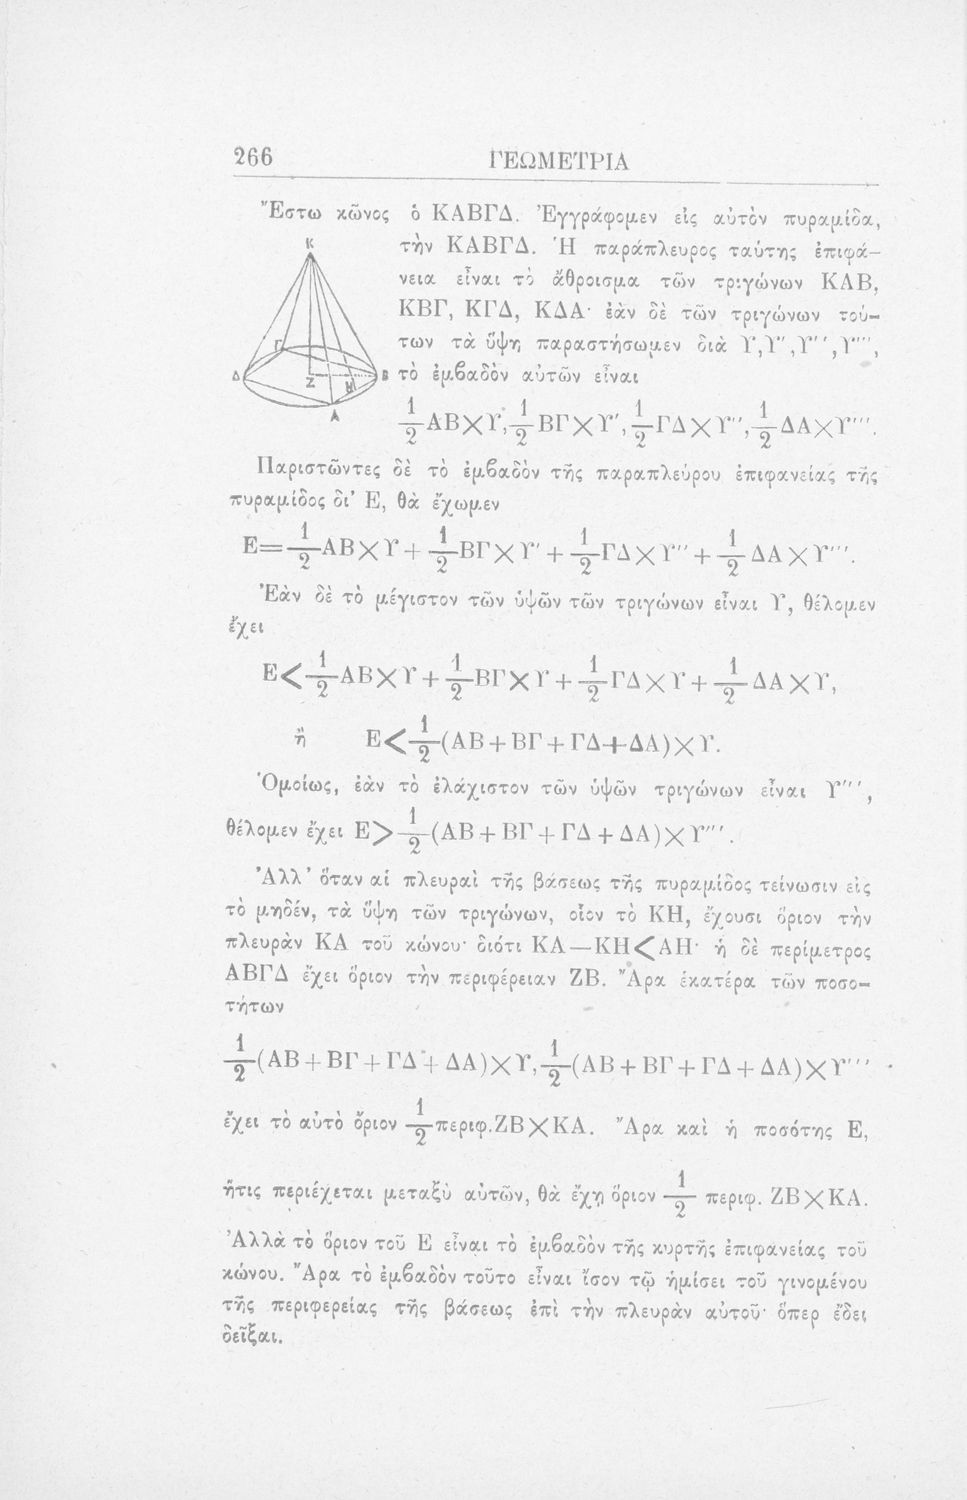 266 ΓΕΩΜΕΤΡΙΑ
Ἔστω κῶνος ὁ ΚΑΒΓΔ. Ἐγγράφομεν εἰς αὐτὸν πυραμίδα,
τὴν ΚΑΒΓΔ. Ἡ παράπλευρος ταύτης ἐπιφά–
νεια εἶναι τὸ ἄθροισμα τῶν τριγώνων ΚΑΒ,
ΚΒΓ, ΚΓΔ, ΚΔΑ· ἐὰν δὲ τῶν τριγώνων τού–
των τὰ ὕψη παραστήσωμεν διὰ Υ,Υ',Υ'',Υ''',
τὸ ἐμβαδὸν αὐτῶν εἶναι
Κ
Γ
Δ Ζ Η Β
Α
1/2 ΑΒ×Υ, 1/2 ΒΓ×Υ', 1/2 ΓΔ×Υ'', 1/2 ΔΑ×Υ'''.
Παριστῶντες δὲ τὸ ἐμβαδὸν τῆς παραπλεύρου ἐπιφανείας τῆς
πυραμίδος δι' Ε, θὰ ἔχωμεν
Ε= 1/2 ΑΒ×Υ + 1/2 ΒΓ×Υ' + 1/2 ΓΔ×Υ'' + 1/2 ΔΑ×Υ'''.
Ἐὰν δὲ τὸ μέγιστον τῶν ὑψῶν τῶν τριγώνων εἶναι Υ, θέλομεν
ἔχει
Ε< 1/2 ΑΒ×Υ + 1/2 ΒΓ×Υ + 1/2 ΓΔ×Υ + 1/2 ΔΑ×Υ,
ἢ Ε< 1/2 (ΑΒ+ΒΓ+ΓΔ+ΔΑ)×Υ.
Ὁμοίως, ἐὰν τὸ ἐλάχιστον τῶν ὑψῶν τριγώνων εἶναι Υ''',
θέλομεν ἔχει Ε> 1/2 (ΑΒ+ΒΓ+ΓΔ+ΔΑ)×Υ'''.
Ἀλλ' ὅταν αἱ πλευραὶ τῆς βάσεως τῆς πυραμίδος τείνωσιν εἰς
τὸ μηδέν, τὰ ὕψη τῶν τριγώνων, οἷον τὸ ΚΗ, ἔχουσι ὅριον τὴν
πλευρὰν ΚΑ τοῦ κώνου· διότι ΚΑ—ΚΗ<ΑΗ· ἡ δὲ περίμετρος
ΑΒΓΔ ἔχει ὅριον τὴν περιφέρειαν ΖΒ. Ἄρα ἑκατέρα τῶν ποσο–
τήτων
1/2 (ΑΒ+ΒΓ+ΓΔ+ΔΑ)×Υ, 1/2 (ΑΒ+ΒΓ+ΓΔ+ΔΑ)×Υ'''
ἔχει τὸ αὐτὸ ὅριον 1/2 περιφ.ΖΒ×ΚΑ. Ἄρα καὶ ἡ ποσότης Ε,
ἥτις περιέχεται μεταξὺ αὐτῶν, θὰ ἔχῃ ὅριον 1/2 περιφ. ΖΒ×ΚΑ.
Ἀλλὰ τὸ ὅριον τοῦ Ε εἶναι τὸ ἐμβαδὸν τῆς κυρτῆς ἐπιφανείας τοῦ
κώνου. Ἄρα τὸ ἐμβαδὸν τοῦτο εἶναι ἴσον τῷ ἡμίσει τοῦ γινομένου
τῆς περιφερείας τῆς βάσεως ἐπὶ τὴν πλευρὰν αὐτοῦ· ὅπερ ἔδει
δεῖξαι.